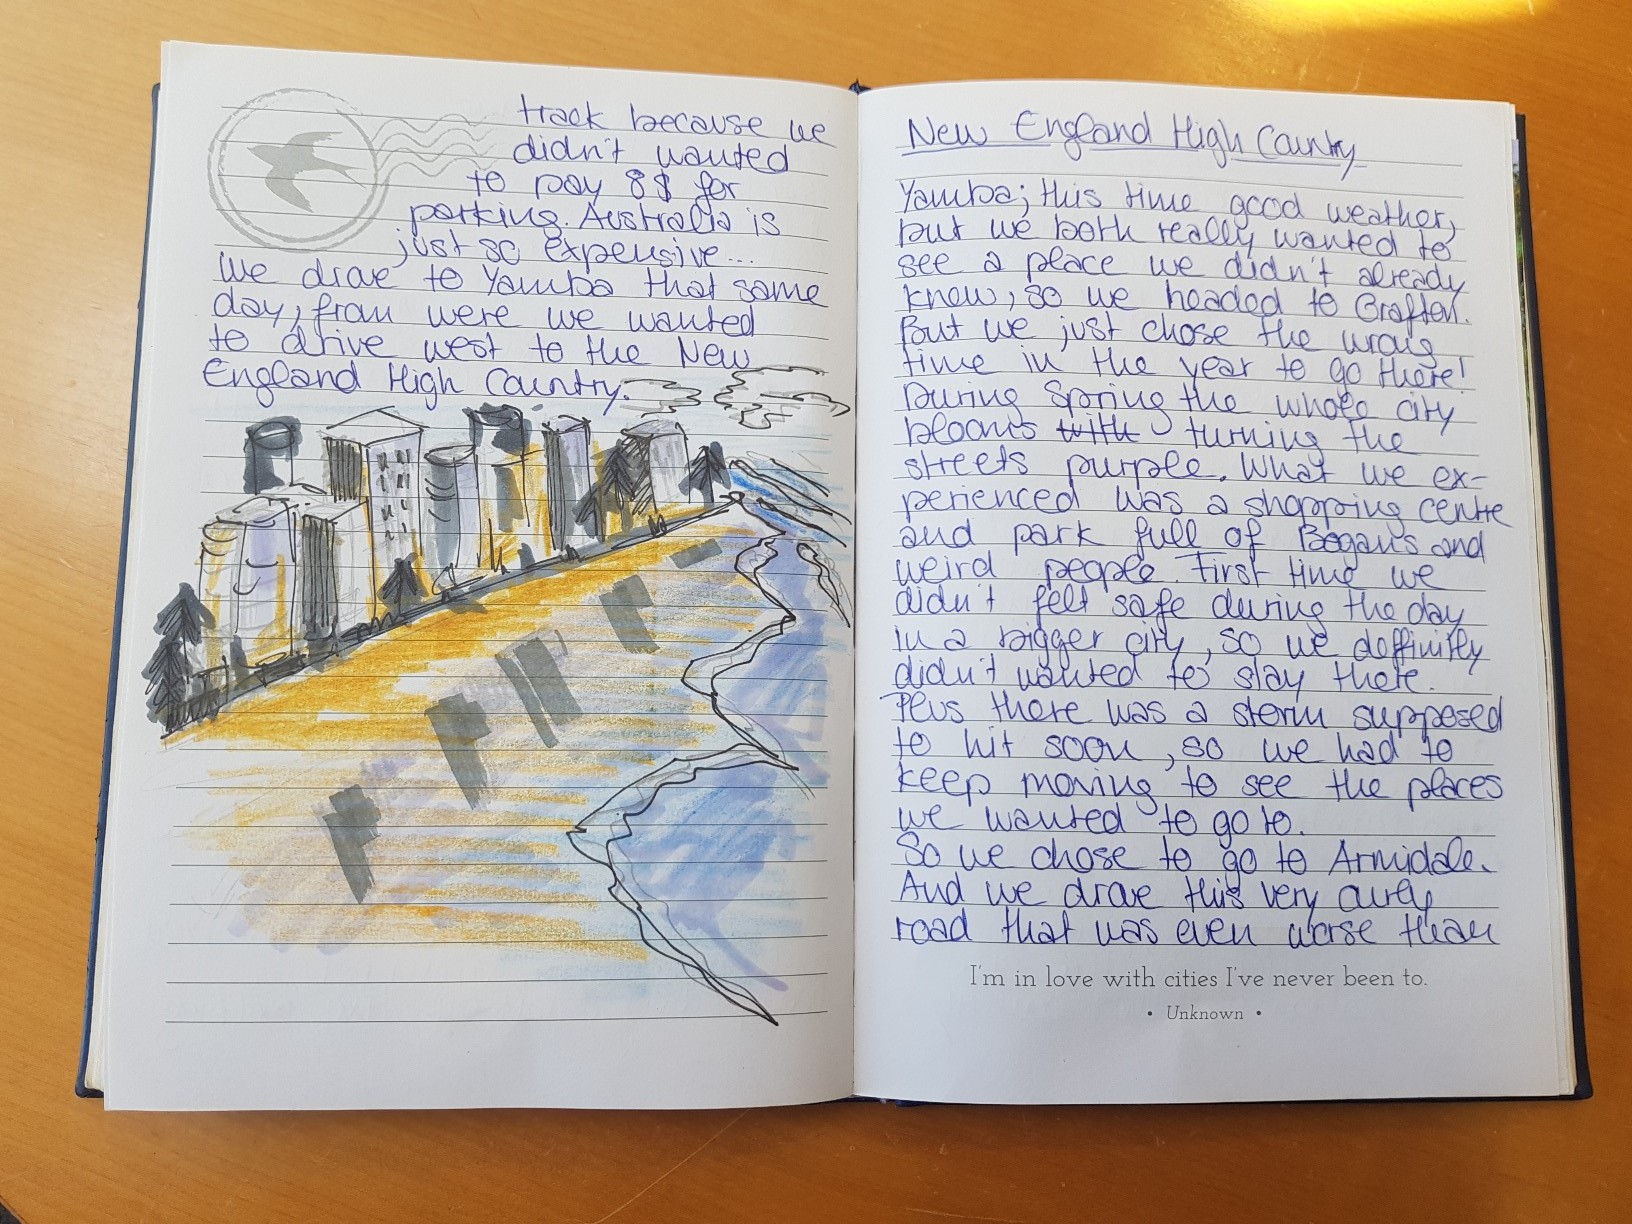 track because we
didn't wanted
to pay 8$ for
parking. Australia is
just so expensive...
We drove to Yamba that same
day, from were we wanted
to drive west to the New
England High Country.
New England High Country
Yamba; this time good weather,
but we both really wanted to
see a place we didn't already
know, so we headed to Grafton.
But we just chose the wrong
time in the year to go there!
During Spring the whole city
blooms with turning the
streets purple. What we ex-
perienced was a shopping centre
and park full of Bogan's and
weird people. First time we
didn't felt safe during the day
in a bigger city, so we deffinitly
didn't wanted to stay there.
Plus there was a storm supposed
to hit soon, so we had to
keep moving to see the places
we wanted to go to.
So we chose to go to Armidale.
And we drove this very curly
road that was even worse than
I'm in love with cities I've never been to.
• Unknown •